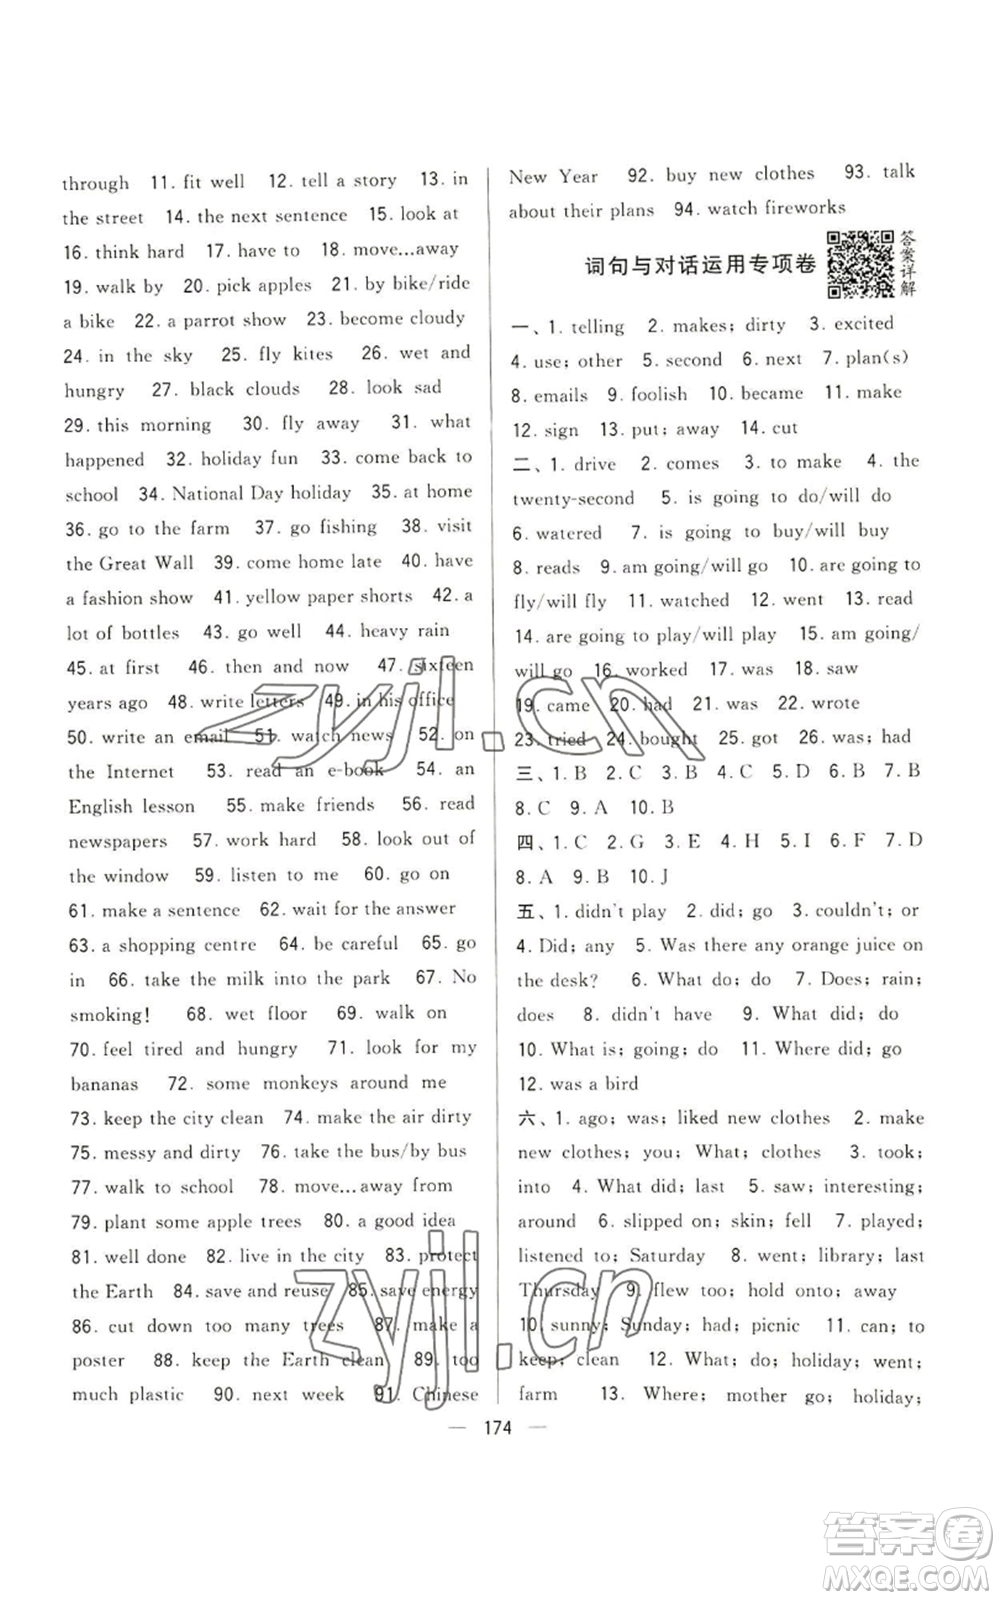 through 11. fit well 12. tell a story 13. in
the street 14. the next sentence 15. look at
16. think hard 17. have to 18. move...away
19. walk by 20. pick apples 21. by bike/ride
a bike 22. a parrot show 23. become cloudy
24. in the sky 25. fly kites 26. wet and
hungry 27. black clouds 28. look sad
29. this morning 30. fly away 31. what
happened 32. holiday fun 33. come back to
school 34. National Day holiday 35. at home
36. go to the farm 37. go fishing 38. visit
the Great Wall 39. come home late 40. have
a fashion show 41. yellow paper shorts 42. a
lot of bottles 43. go well 44. heavy rain
45. at first 46. then and now 47. sixteen
years ago 48. write letters 49. in his office
50. write an email 51. watch news 52. on
the Internet 53. read an e-book 54. an
English lesson 55. make friends 56. read
newspapers 57. work hard 58. look out of
the window 59. listen to me 60. go on
61. make a sentence 62. wait for the answer
63. a shopping centre 64. be careful 65. go
in 66. take the milk into the park 67. No
smoking! 68. wet floor 69. walk on
70. feel tired and hungry 71. look for my
bananas 72. some monkeys around me
73. keep the city clean 74. make the air dirty
75. messy and dirty 76. take the bus/by bus
77. walk to school 78. move...away from
79. plant some apple trees 80. a good idea
81. well done 82. live in the city 83. protect
the Earth 84. save and reuse 85. save energy
86. cut down too many trees 87. make a
poster 88. keep the Earth clean 89. too
much plastic 90. next week 91. Chinese
New Year 92. buy new clothes 93. talk
about their plans 94. watch fireworks
词句与对话运用专项卷
答案详解
一、1. telling 2. makes; dirty 3. excited
4. use; other 5. second 6. next 7. plan(s)
8. emails 9. foolish 10. became 11. make
12. sign 13. put; away 14. cut
二、1. drive 2. comes 3. to make 4. the
twenty-second 5. is going to do/will do
6. watered 7. is going to buy/will buy
8. reads 9. am going/will go 10. are going to
fly/will fly 11. watched 12. went 13. read
14. are going to play/will play 15. am going/
will go 16. worked 17. was 18. saw
19. came 20. had 21. was 22. wrote
23. tried 24. bought 25. got 26. was; had
三、1. B 2. C 3. B 4. C 5. D 6. B 7. B
8. C 9. A 10. B
四、1. C 2. G 3. E 4. H 5. I 6. F 7. D
8. A 9. B 10. J
五、1. didn't play 2. did; go 3. couldn't; or
4. Did; any 5. Was there any orange juice on
the desk? 6. What do; do 7. Does; rain;
does 8. didn't have 9. What did; do
10. What is; going; do 11. Where did; go
12. was a bird
六、1. ago; was; liked new clothes 2. make
new clothes; you; What; clothes 3. took;
into 4. What did; last 5. saw; interesting;
around 6. slipped on; skin; fell 7. played;
listened to; Saturday 8. went; library; last
Thursday 9. flew too; hold onto; away
10. sunny; Sunday; had; picnic 11. can; to
keep; clean 12. What; do; holiday; went;
farm 13. Where; mother go; holiday;
— 174 —
zyjl.cn
zyjl.cn
答案卷
MXQE.COM